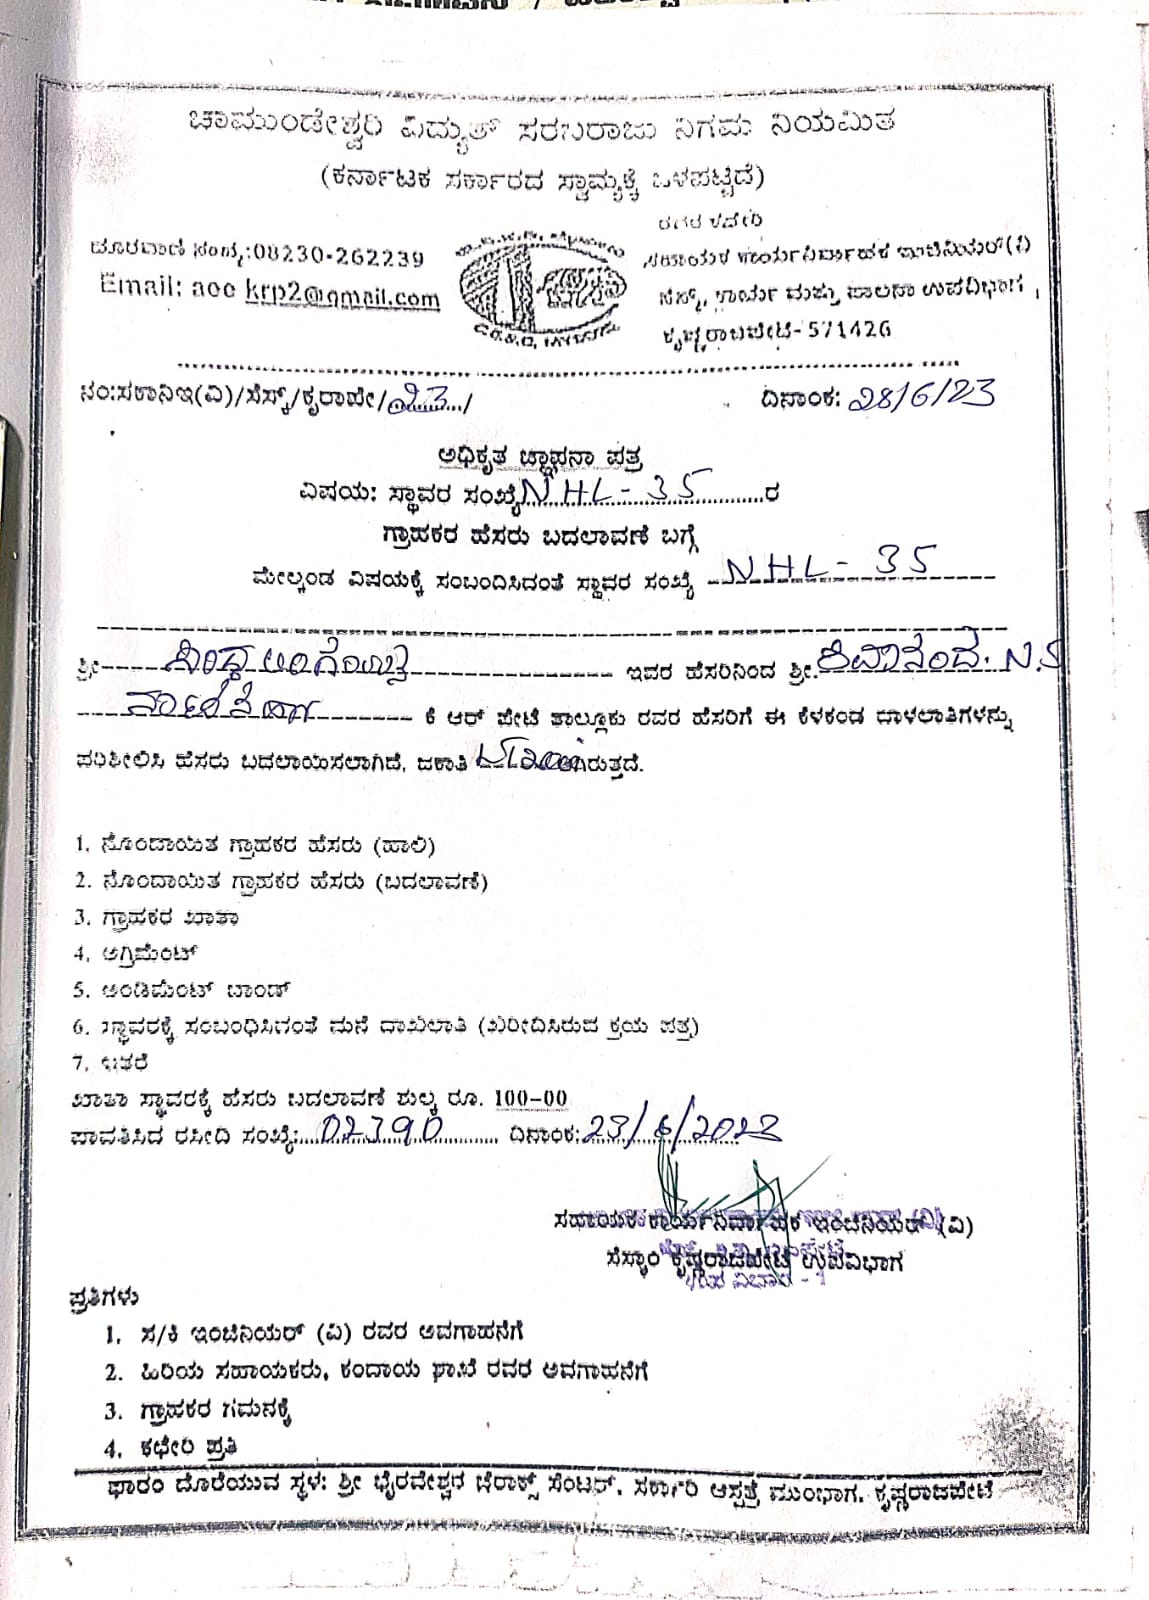 ಚಾಮುಂಡೇಶ್ವರಿ ವಿದ್ಯುತ್ ಸರಬರಾಜು ನಿಗಮ ನಿಯಮಿತ
(ಕರ್ನಾಟಕ ಸರ್ಕಾರದ ಸ್ವಾಮ್ಯಕ್ಕೆ ಒಳಪಟ್ಟಿದೆ)
ದೂರವಾಣಿ ಸಂಖ್ಯೆ:08230-262239
Email: aee krp2@gmail.com
ನಗರ ಕಚೇರಿ
ಸಹಾಯಕ ಕಾರ್ಯನಿರ್ವಾಹಕ ಇಂಜಿನಿಯರ್(ವಿ)
ಸೆಸ್ಕ್, ಕಾರ್ಯ ಮತ್ತು ಪಾಲನಾ ಉಪವಿಭಾಗ,
ಕೃಷ್ಣರಾಜಪೇಟೆ-571426
ನಂ:ಸಕಾನಿಇ(ವಿ)/ಸೆಸ್ಕ್/ಕೃರಾಪೇ/23/
ದಿನಾಂಕ: 28/6/23
ಅಧಿಕೃತ ಜ್ಞಾಪನಾ ಪತ್ರ
ವಿಷಯ: ಸ್ಥಾವರ ಸಂಖ್ಯೆ NHL-35 ರ
ಗ್ರಾಹಕರ ಹೆಸರು ಬದಲಾವಣೆ ಬಗ್ಗೆ
ಮೇಲ್ಕಂಡ ವಿಷಯಕ್ಕೆ ಸಂಬಂದಿಸಿದಂತೆ ಸ್ಥಾವರ ಸಂಖ್ಯೆ NHL-35
ಶ್ರೀ ಇವರ ಹೆಸರಿನಿಂದ ಶ್ರೀ. ಶಿವಾನಂದ. N.S
ಕೆ ಆರ್ ಪೇಟೆ ತಾಲ್ಲೂಕು ರವರ ಹೆಸರಿಗೆ ಈ ಕೆಳಕಂಡ ದಾಖಲಾತಿಗಳನ್ನು
ಪರಿಶೀಲಿಸಿ ಹೆಸರು ಬದಲಾಯಿಸಲಾಗಿದೆ. ಜಕಾತಿ ಆಗಿರುತ್ತದೆ.
1. ನೊಂದಾಯಿತ ಗ್ರಾಹಕರ ಹೆಸರು (ಹಾಲಿ)
2. ನೊಂದಾಯಿತ ಗ್ರಾಹಕರ ಹೆಸರು (ಬದಲಾವಣೆ)
3. ಗ್ರಾಹಕರ ಖಾತಾ
4. ಅಗ್ರಿಮೆಂಟ್
5. ಅಂಡಿಮೆಂಟ್ ಬಾಂಡ್
6. ಸ್ಥಾವರಕ್ಕೆ ಸಂಬಂಧಿಸಿದಂತೆ ಮನೆ ದಾಖಲಾತಿ (ಖರೀದಿಸಿರುವ ಕ್ರಯ ಪತ್ರ)
7. ಇತರೆ
ಖಾತಾ ಸ್ಥಾವರಕ್ಕೆ ಹೆಸರು ಬದಲಾವಣೆ ಶುಲ್ಕ ರೂ. 100-00
ಪಾವತಿಸಿದ ರಸೀದಿ ಸಂಖ್ಯೆ: 02390 ದಿನಾಂಕ: 23/6/2023
ಸಹಾಯಕ ಕಾರ್ಯನಿರ್ವಾಹಕ ಇಂಜಿನಿಯರ್ (ವಿ)
ಸೆಸ್ಕಾಂ ಕೃಷ್ಣರಾಜಪೇಟೆ ಉಪವಿಭಾಗ
ಪ್ರತಿಗಳು
1. ಸ/ಕಿ ಇಂಜಿನಿಯರ್ (ವಿ) ರವರ ಅವಗಾಹನೆಗೆ
2. ಹಿರಿಯ ಸಹಾಯಕರು, ಕಂದಾಯ ಶಾಖೆ ರವರ ಅವಗಾಹನೆಗೆ
3. ಗ್ರಾಹಕರ ಗಮನಕ್ಕೆ
4. ಕಛೇರಿ ಪ್ರತಿ
ಫಾರಂ ದೊರೆಯುವ ಸ್ಥಳ: ಶ್ರೀ ಭೈರವೇಶ್ವರ ಜೆರಾಕ್ಸ್ ಸೆಂಟರ್. ಸರ್ಕಾರಿ ಆಸ್ಪತ್ರೆ ಮುಂಭಾಗ. ಕೃಷ್ಣರಾಜಪೇಟೆ